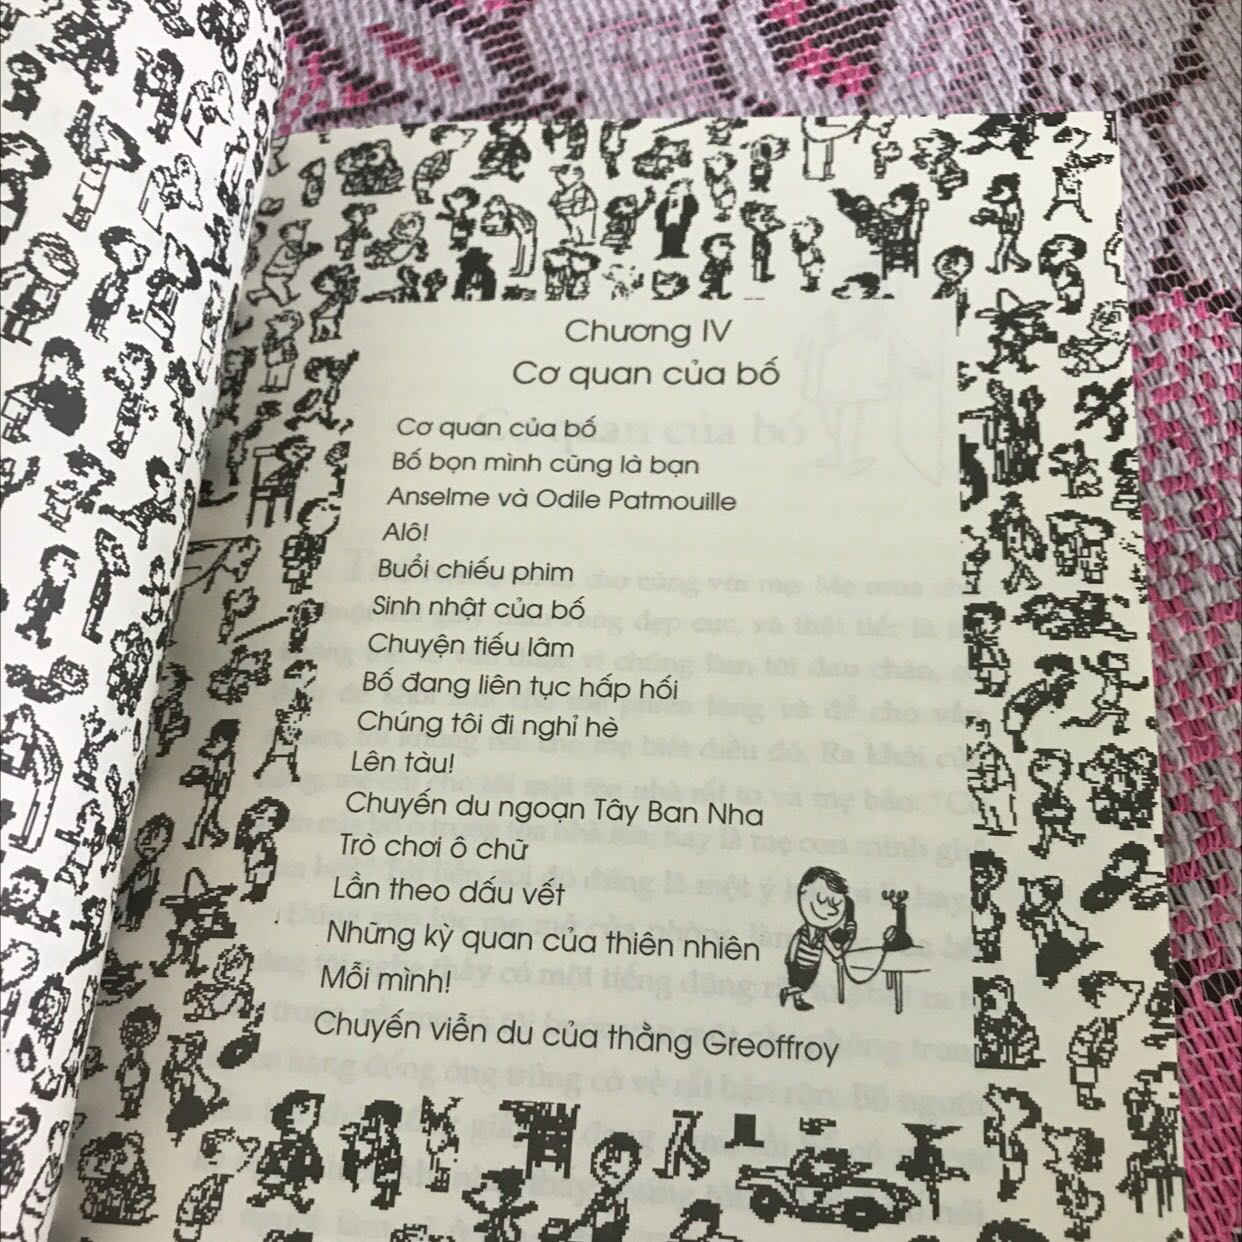 Chương IV
Cơ quan của bố
Cơ quan của bố
Bố bọn mình cũng là bạn
Anselme và Odile Patmouille
Alô!
Buổi chiếu phim
Sinh nhật của bố
Chuyện tiếu lâm
Bố đang liên tục hấp hối
Chúng tôi đi nghỉ hè
Lên tàu!
Chuyến du ngoạn Tây Ban Nha
Trò chơi ô chữ
Lần theo dấu vết
Những kỳ quan của thiên nhiên
Mỗi mình!
Chuyến viễn du của thằng Greoffroy